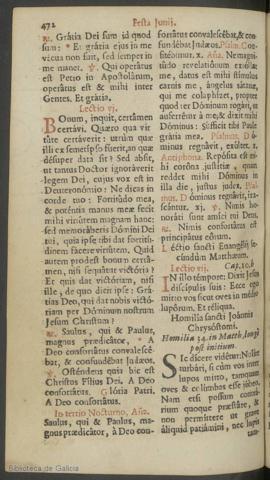 472 Festa Junij.
℟. Gratia Dei sum id quod
sum: * Et gratia ejus in me
vacua non fuit, sed semper in
me manet. ℣. Qui operatus
est Petro in Apostolatum,
operatus est & mihi inter
Gentes. Et gratia.
Lectio vj.
BOnum, inquit, certamen
certavi. Quæro qua vir-
tute certaverit: utrum quæ
illi ex semetipso fuerit, an quæ
desuper data sit? Sed absit,
ut tantus Doctor ignoraverit
legem Dei, cujus vox est in
Deuteronomio: Ne dicas in
corde tuo: Fortitudo mea,
& potentia manus meæ fecit
mihi virtutem magnam hanc;
sed memoraberis Domini Dei
tui, quia ipse tibi dat fortitu-
dinem facere virtutem. Quid
autem prodest bonum certa-
men, nisi sequatur victoria?
Et quis dat victoriam, nisi
ille, de quo dicit ipse: Grá-
tias Deo, qui dat nobis victó-
riam per Dóminum nostrum
Jesum Christum?
℟. Saulus, qui & Paulus,
magnus prædicator, * A
Deo confortatus convalesce-
bat, & confundebat Judæos.
℣. Ostendens quia hic est
Christus Filius Dei. A Deo
confortatus. Gloria Patri.
A Deo confortatus.
In tertio Nocturno, Aña.
Saulus, qui & Paulus, ma-
gnus prædicator, à Deo con-
fortatus convalescebat, & con-
fundebat Judæos. Psalm. Con-
fitebimur. x. Aña. Ne magni-
tudo revelationum extollat
me, datus est mihi stimulus
carnis meæ, angelus satanæ,
qui me colaphizet, propter
quod ter Dóminum rogavi, ut
auferretur à me, & dixit mihi
Dóminus: Sufficit tibi Paule
gratia mea. Psalmus. Dó-
minus regnavit, exultet. x.
Antiphona. Reposita est mi-
hi corona justitiæ, quam
reddet mihi Dóminus in
illa die, justus judex. Psal-
mus. Dóminus regnavit, ira-
scantur. xj. ℣. Nimis ho-
norati sunt amici tui Deus.
℟. Nimis confortatus est
principatus eórum.
Léctio sancti Evangelij se-
cundùm Matthæum.
Lectio vij. Cap. 10. b
IN illo témpore: Dixit Jesus
discipulis suis: Ecce ego
mitto vos sicut oves in medio
lupórum. Et réliqua.
Homilia sancti Joannis
Chrysóstomi.
Homilia 34. in Matth. longè
post initium.
SIc discere vidétur: Nolite
turbari, si cùm vos inter
lupos mitto, tamquam
oves & columbas esse jubeo.
Nam etsi possum contrá-
rium quoque præstáre, &
non permittere ut grave
aliquid patiámini, nec lupis
Biblioteca de Galicia